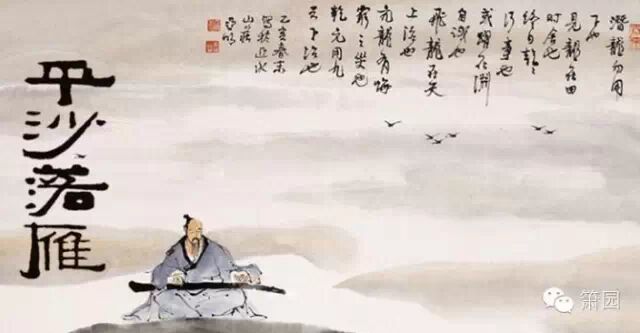 潛龍勿用
下也
見龍在田
时舍也
終日乾乾
行事也
或躍在淵
自试也
飛龍在天
上治也
亢龍有悔
窮之災也
乾元用九
天下治也
乙亥春末
寫於近水
山莊
亞明
平沙落雁
箫园